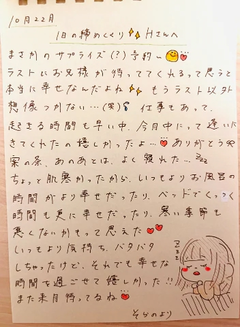 10月22日
1日の締めくくり Hさんへ
まさかのサプライズ(?)予約〜
ラストにお兄様が待っててくれると思うと
本当に幸せなんだよね もうラスト以外
想像つかない…(笑) 仕事もあって、
起きる時間も早い中、今日中にって逢いに
きてくれたの嬉しかったよ ありがとう
案の条、あのあとは、よく寝れた…
ちょっと肌寒かったから、いつもよりお風呂の
時間がより幸せだったり、ベッドでくっつく
時間も更に幸せだったり、寒い季節も
悪くないかもって思えた
いつもより気持ち、バタバタ
しちゃったけど、それでも幸せな
時間を過ごせて嬉しかった!!
また来月待ってるね
より